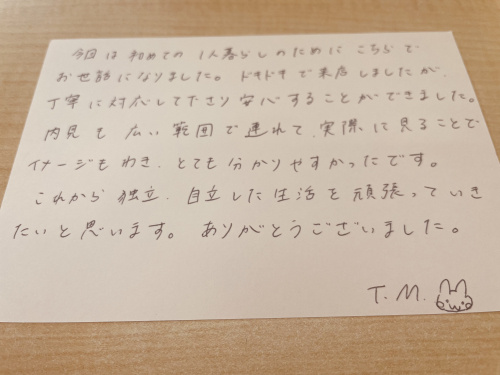 今回は初めての1人暮らしのためにこちらで
お世話になりました。ドキドキで来店しましたが、
丁寧に対応して下さり安心することができました。
内見も広い範囲で連れて、実際に見ることで
イメージもわき、とても分かりやすかったです。
これから独立、自立した生活を頑張っていき
たいと思います。ありがとうございました。
T.M.